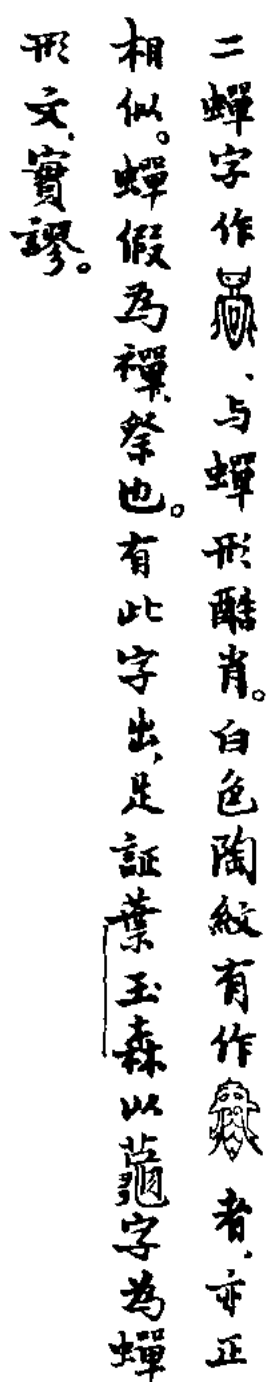 二蟬字作、与蟬形酷肖。白色陶紋有作者、亦正
相似。蟬假為禪、祭也。有此字出、足証葉玉森以字為蟬
形文、實謬。